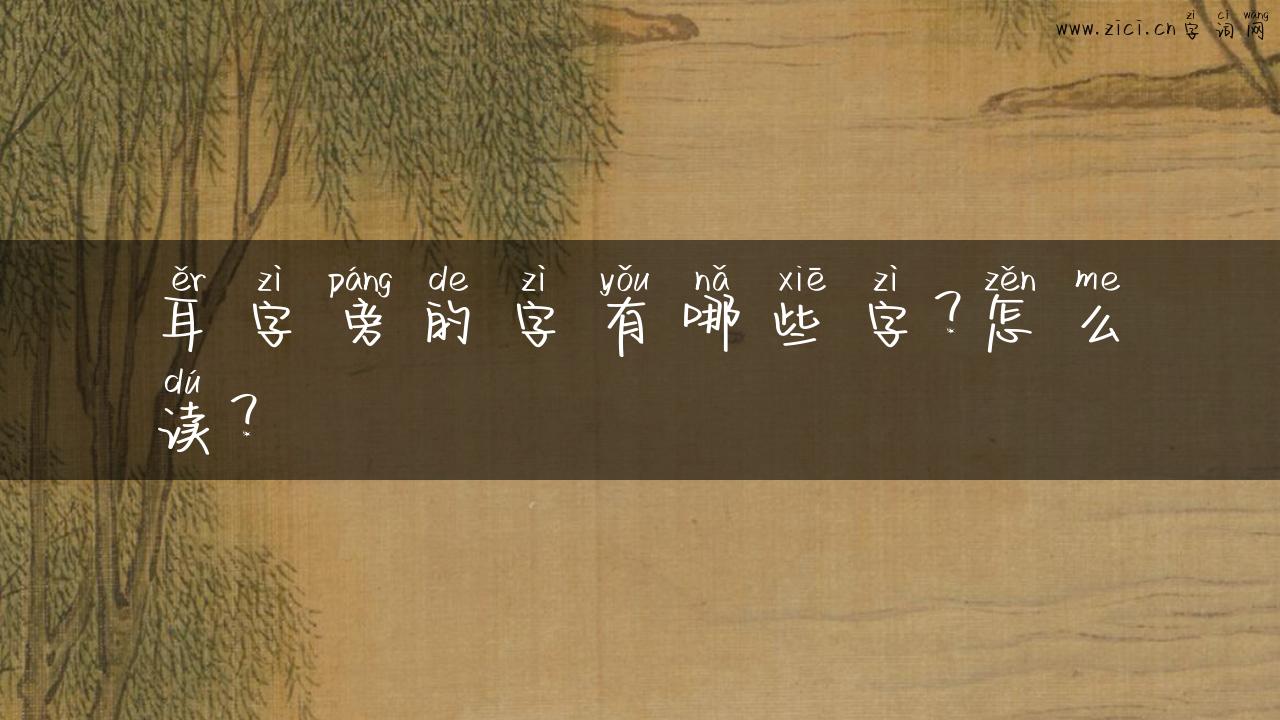 zì cí wǎng
www.zici.cn字词网
ěr zì páng de zì yǒu nǎ xiē zì zěn me
耳字旁的字有哪些字?怎么
dú
读?